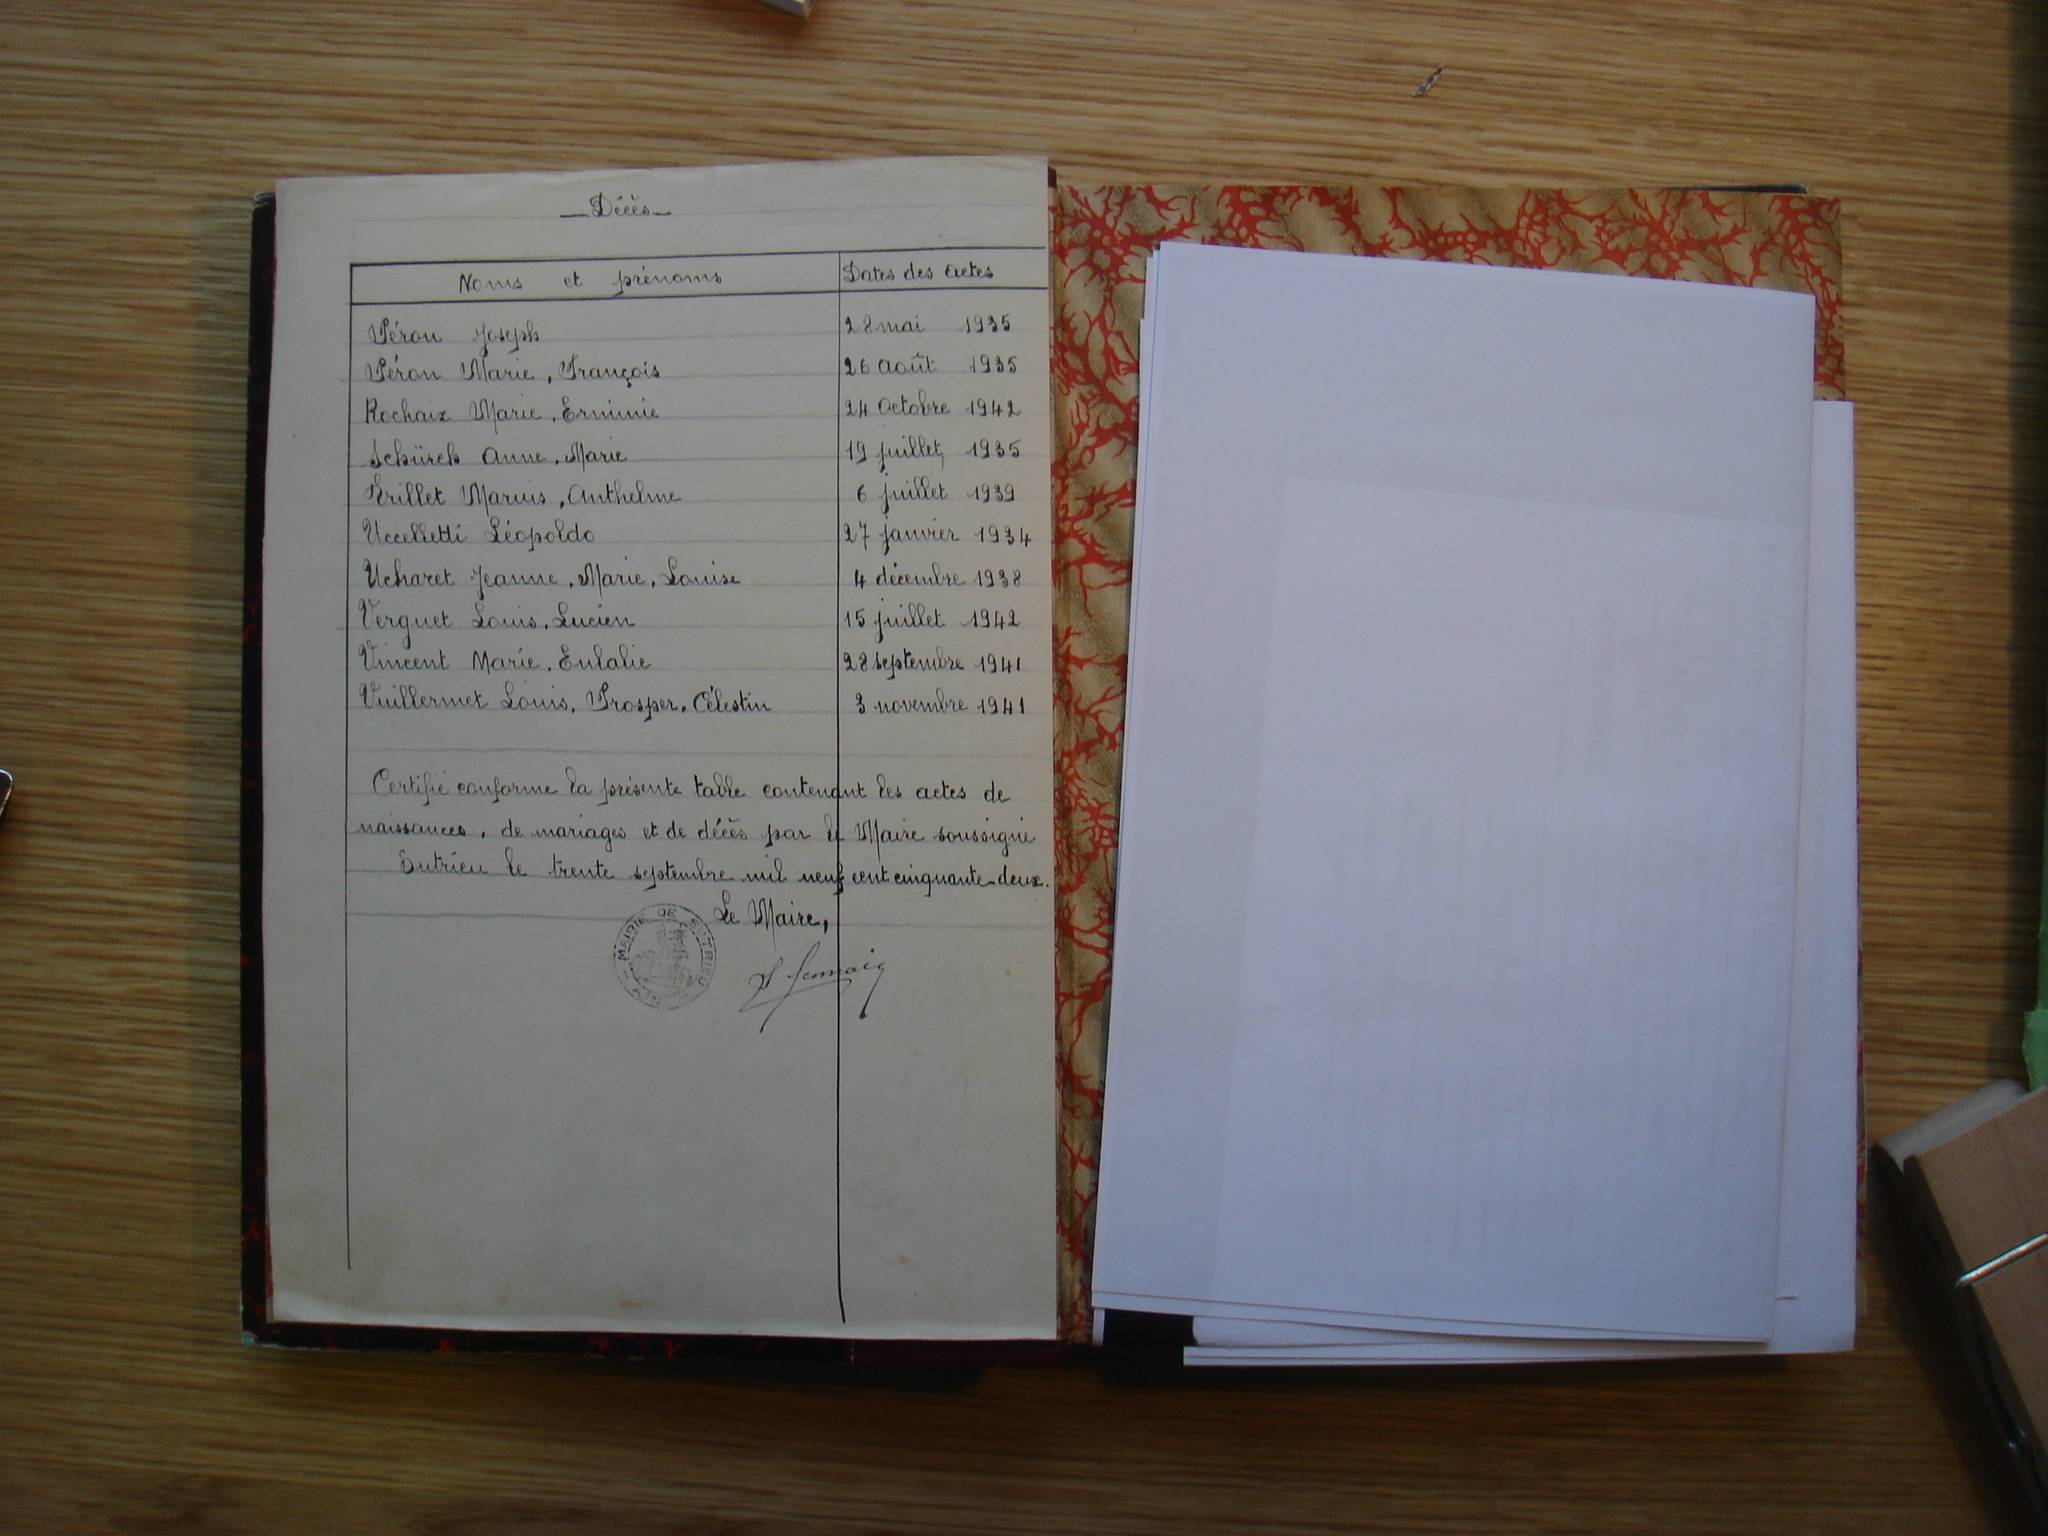 Décès
Noms et prénoms Dates des actes
Péron Joseph 28 mai 1935
Péron Marie, François 26 août 1935
Rochaix Marie, Erminie 24 octobre 1942
Schürch Anne, Marie 19 juillet, 1935
Trillet Marius, Anthelme 6 juillet 1939
Uccelletti Léopoldo 27 janvier 1934
Ucharet Jeanne, Marie, Louise 4 décembre 1938
Verguet Louis, Lucien 15 juillet 1942
Vincent Marie, Eulalie 28 septembre 1941
Vuillermet Louis, Prosper, Célestin 3 novembre 1941
Certifié conforme la présente table contenant les actes de
naissances, de mariages et de décès par le Maire soussigné
Sutrieu le trente septembre mil neuf cent cinquante-deux.
Le Maire,
MAIRIE DE SUTRIEU